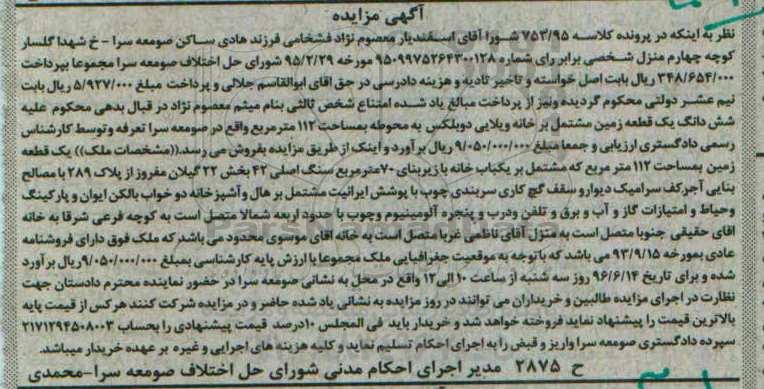 آگهی مزایده
نظر به اینکه در پرونده کلاسه ۷۵۳/۹۵ شورا آقای اسفندیار معصوم نژاد فشخامی فرزند هادی ساکن صومعه سرا - خ شهدا گلسار
کوچه چهارم منزل شخصی برابر رای شماره ۹۵۰۹۹۷۵۲۶۴۳۰۰۱۲۸ مورخه ۹۵/۲/۲۹ شورای حل اختلاف صومعه سرا مجموعا بپرداخت
۲۴۸/۶۵۴/۰۰۰ ریال بابت اصل خواسته و تاخیر تادیه و هزینه دادرسی در حق آقای ابوالقاسم جلالی و پرداخت مبلغ ۵/۹۲۷/۰۰۰ ریال بابت
نیم عشر دولتی محکوم گردیده ونیز از پرداخت مبالغ یاد شده امتناع شخص ثالثی بنام میثم معصوم نژاد در قبال بدهی محکوم علیه
شش دانگ یک قطعه زمین مشتمل بر خانه ویلایی دوبلکس به محوطه بمساحت ۱۱۲ مترمربع واقع در صومعه سرا تعرفه وتوسط کارشناس
رسمی دادگستری ارزیابی و جمعا مبلغ ۹/۰۵۰/۰۰۰/۰۰۰ ریال برآورد و اینک از طریق مزایده بفروش می رسد.((مشخصات ملک)) یک قطعه
زمین بمساحت ۱۱۲ متر مربع که مشتمل بر یکباب خانه با زیربنای ۷۰مترمربع سنگ اصلی ۴۲ بخش ۲۲ گیلان مفروز از پلاک ۲۸۹ با مصالح
بنایی آجرکف سرامیک دیوارو سقف گچ کاری سربندی چوب با پوشش ایرانیت مشتمل بر هال و آشپزخانه دو خواب بالکن ایوان و پارکینگ
وحیاط و امتیازات گاز و آب و برق و تلفن ودرب و پنجره آلومینیوم وچوب با حدود اربعه شمالا متصل است به کوچه فرعی شرقا به خانه
اقای حقیقی جنوبا متصل است به منزل آقای ناظمی غربا متصل است به خانه اقای موسوی محدود می باشد که ملک فوق دارای فروشنامه
عادی بمورخه ۹۳/۹/۱۵ می باشد که باتوجه به موقعیت جغرافیایی ملک مجموعا با ارزش پایه کارشناسی بمبلغ ۹/۰۵۰/۰۰۰/۰۰۰ریال برآورد
شده و برای تاریخ ۹۶/۶/۱۴ روز سه شنبه از ساعت ۱۰ الی۱۲ واقع در محل به نشانی صومعه سرا در حضور نماینده محترم دادستان جهت
نظارت در اجرای مزایده طالبین و خریداران می توانند در روز مزایده به نشانی یاد شده حاضر و در مزایده شرکت کنند هرکس از قیمت پایه
بالاترین قیمت را پیشنهاد نماید فروخته خواهد شد و خریدار باید فی المجلس ۱۰درصد قیمت پیشنهادی را بحساب ۲۱۷۱۲۹۴۵۰۸۰۰۳
سپرده دادگستری صومعه سرا واریز و قبض را به اجرای احکام تسلیم نماید و کلیه هزینه های اجرایی و غیره بر عهده خریدار میباشد.
ح ۲۸۷۵ مدیر اجرای احکام مدنی شورای حل اختلاف صومعه سرا-محمدی